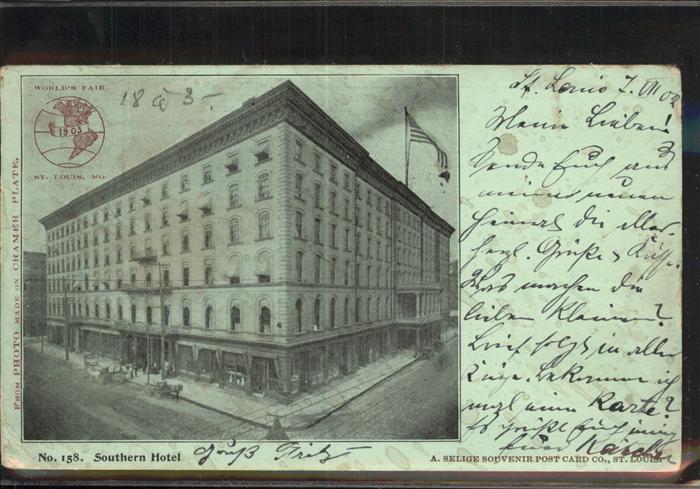 WORLD'S FAIR
1903
ST. LOUIS, MO
FROM PHOTO MADE ON CRAMER PLATE.
18 a 3 -
St. Louis 7. VIII 02
Meine Lieben!
Sende Euch aus
meiner neuen
Heimat die aller
herzl. Grüße & Küsse.
Was machen die
lieben Kleinen?
Brief folgt in aller
Kürze. Bekomme ich
mal eine Karte?
Es grüßt Euch innig
Euer
Gruß Fritz
No. 158. Southern Hotel
A. SELIGE SOUVENIR POST CARD CO., ST. LOUIS.